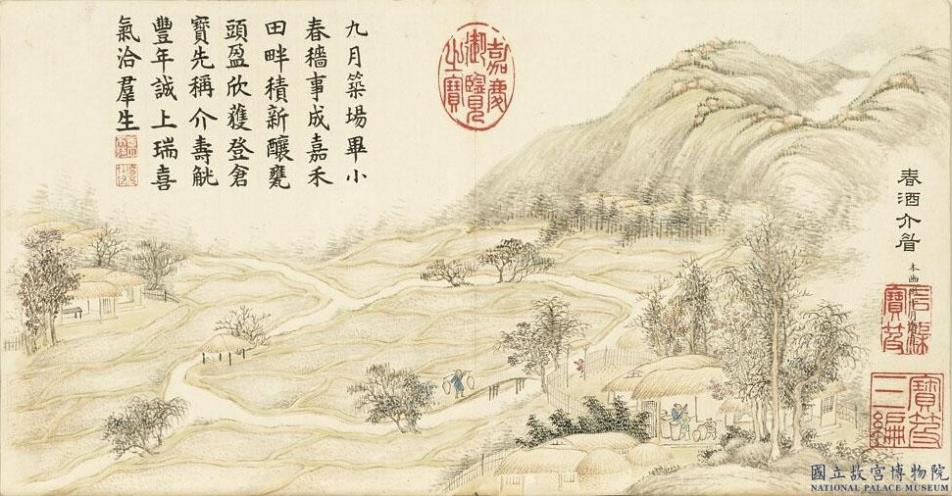 春酒介眉
九月築場畢小
春穡事成嘉禾
田畔積新釀甕
頭盈欣穫登倉
寶先稱介壽觥
豐年誠上瑞喜
氣洽羣生
嘉慶御覽之寶
石渠寶笈
寶笈三編
國立故宮博物院
NATIONAL PALACE MUSEUM